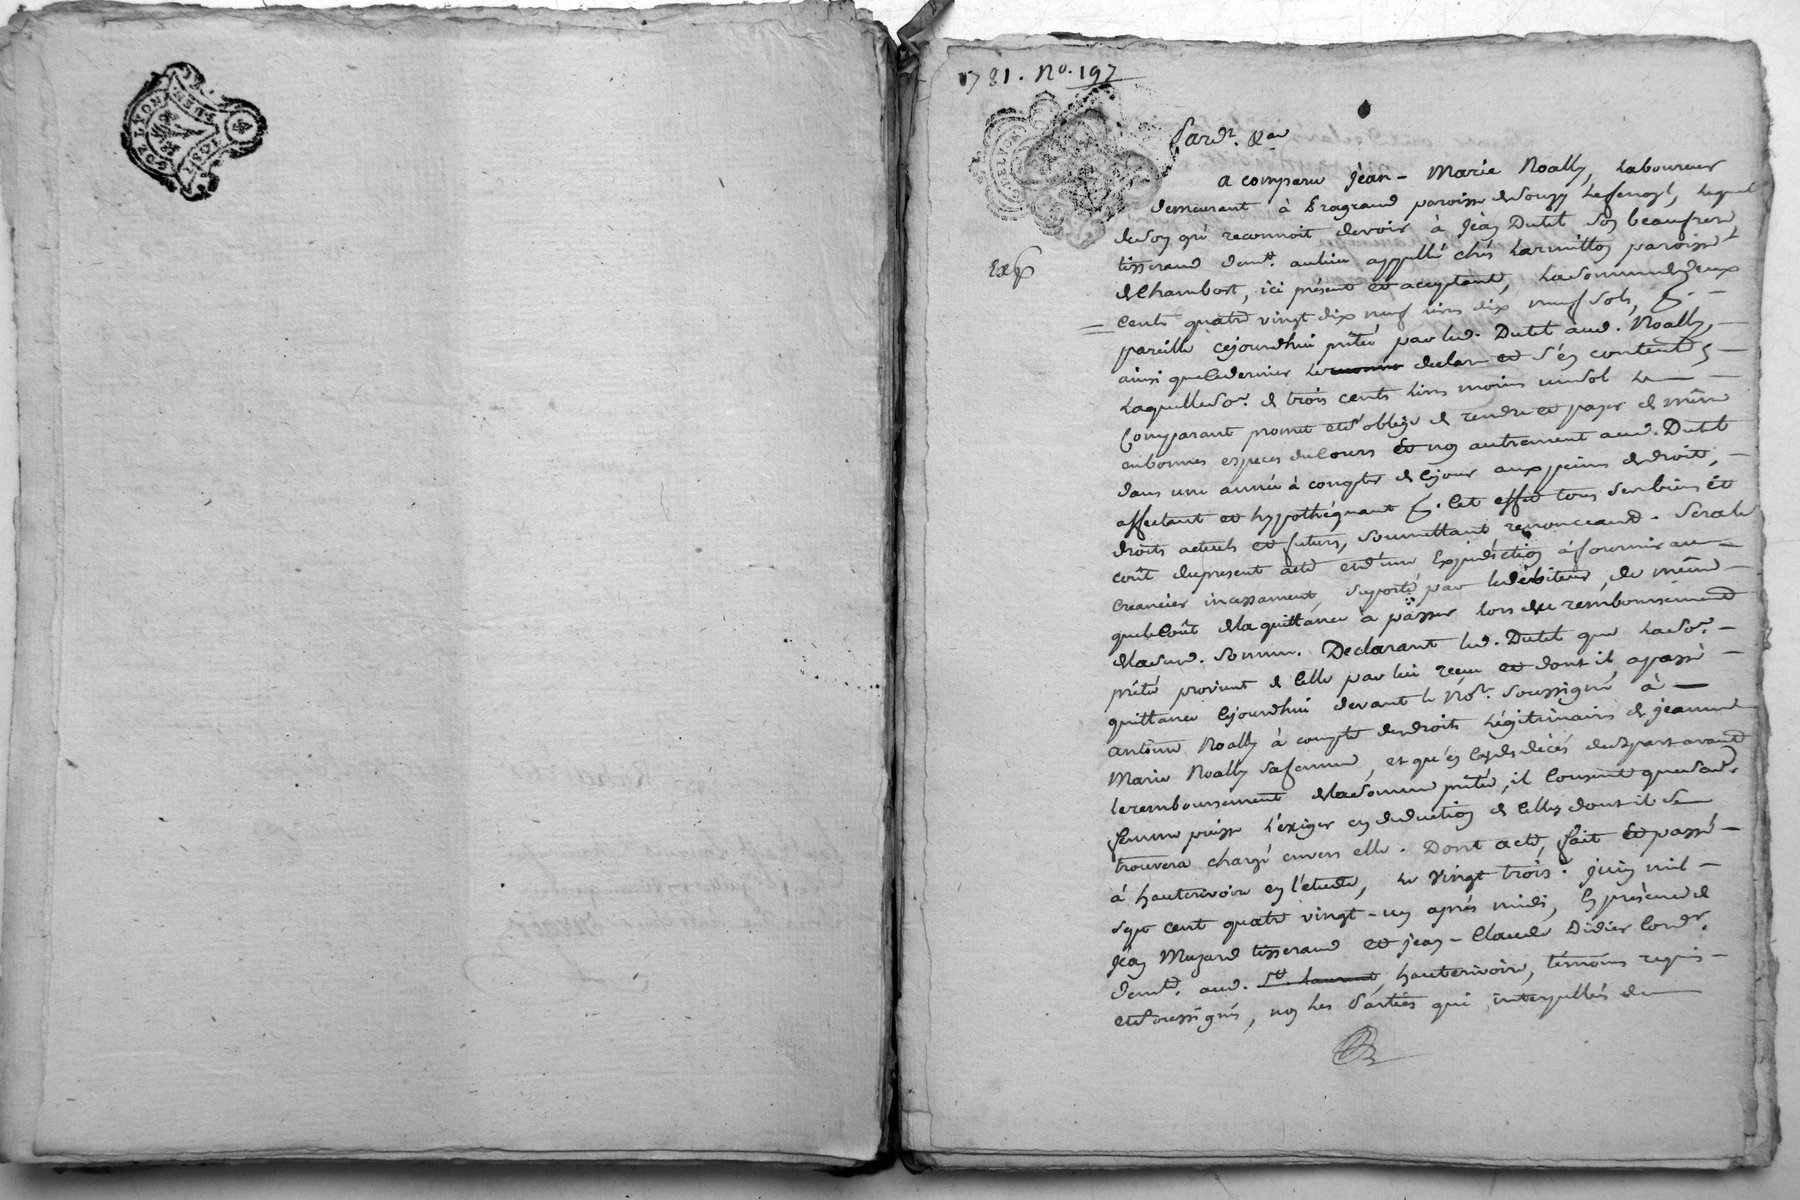 GDE LYON
1781. No. 197
GDE LYON
Pardt. &a
Exp
a comparu Jean-Marie Noally, Laboureur
demeurant à paroisse de Souzy Largentl, lequel
de son gré reconnoit devoir à Jean Dutel son beaufrere
tisserand demt. au lieu appellé chés Larmillon paroisse
de Chambost, ici présent et aceptant, La somme de deux
Cents quatre vingt dix neuf livres dix neuf sols,
pareille cejourdhui prêtée par led. Dutel aud. Noally,
ainsi que le dernier le declare et s'en contente,
Laquelle so^e. de trois cents livres moins un sol le
Comparant promet et s'oblige de rendre et payer de même
en bonnes especes du Cours et non autrement aud. Dutel
dans une année à compter de cejour aux peines de droit,
affectant et hypothéquant à Cet effet tous ses biens et
droits actuels et futurs, soumettant renonceant. Sera le
coût du present acte et d'une Expédition à fournir au
Creancier incessament, suporté par le debiteur, de même
que le Coût de la quittance à passer lors du remboursement
de lad. somme. Declarant led. Dutel que La so^e.
prêtée provient de Celle par lui reçue et dont il a passé
quittance cejourdhui devant le No^re. soussigné à
antoine Noally à compte des droits Légitimaires de jeanne
Marie Noally sa femme, et qu'en Cas de décés de sa part avant
le remboursement de la somme prêtée, il Consent que sad.
femme puisse L'exiger en deduction de Celles dont il se
trouvera chargé envers elle. Dont acte, fait et passé
à hauterivoire en l'etude, le vingt trois. juin mil
sept cent quatre vingt-un après midi, En présence de
Jean Mazard tisserand et jean-Claude Didier Cord^r.
demts. aud. St. Laurent, hauterivoire, témoins requis
et soussignés, non les Parties qui interpellés de